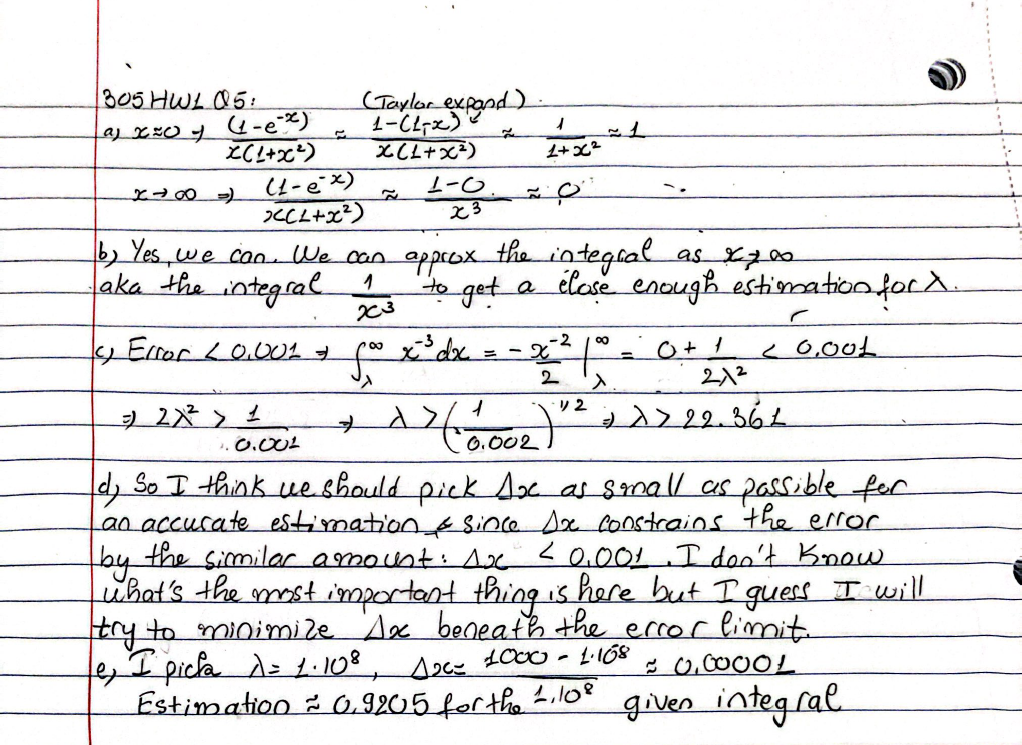 305 HW1 Q5: (Taylor expand)
a) x≈0 → (1-e^-x) / x(1+x²) ≈ 1-(1-x) / x(1+x²) ≈ 1 / 1+x² ≈ 1
x→∞ ⇒ (1-e^-x) / x(1+x²) ≈ 1-0 / x³ ≈ 0
b) Yes, we can. We can approx the integral as x→∞
aka the integral 1/x³ to get a close enough estimation for λ.
c) Error < 0.001 → ∫_λ^∞ x^-3 dx = - x^-2 / 2 |_λ^∞ = 0 + 1 / 2λ² < 0.001
⇒ 2λ² > 1 / 0.001 → λ > (1 / 0.002)^1/2 ⇒ λ > 22.361
d) So I think we should pick Δx as small as possible for
an accurate estimation & since Δx constrains the error
by the similar amount: Δx < 0.001. I don't know
what's the most important thing is here but I guess I will
try to minimize Δx beneath the error limit.
e) I pick λ = 1·10^8, Δx = 1000 - 1·10^8 / 1·10^8 ≈ 0.00001
Estimation ≈ 0.9205 for the given integral